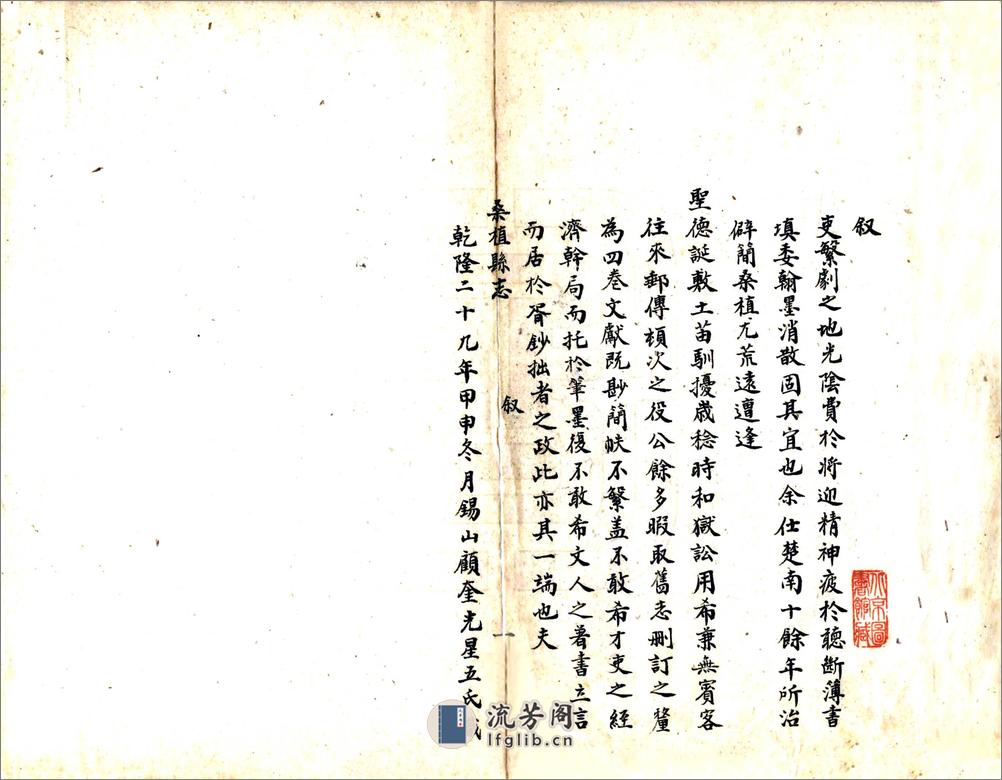 叙
吏繁劇之地光陰費於將迎精神疲於聽斷簿書
填委翰墨消散固其宜也余仕楚南十餘年所治
僻簡桑植尤荒遠遭逢
聖德誕敷土苗馴擾歲稔時和獄訟用希兼無賓客
往來郵傳頓次之役公餘多暇取舊志刪訂之釐
為四卷文獻既尠簡帙不繁盖不敢希才吏之經
濟幹局而托於筆墨復不敢希文人之著書立言
而居於胥鈔拙者之政此亦其一端也夫
桑植縣志
叙
一
乾隆二十九年甲申冬月錫山顧奎光星五氏
流芳阁
lfglib.cn